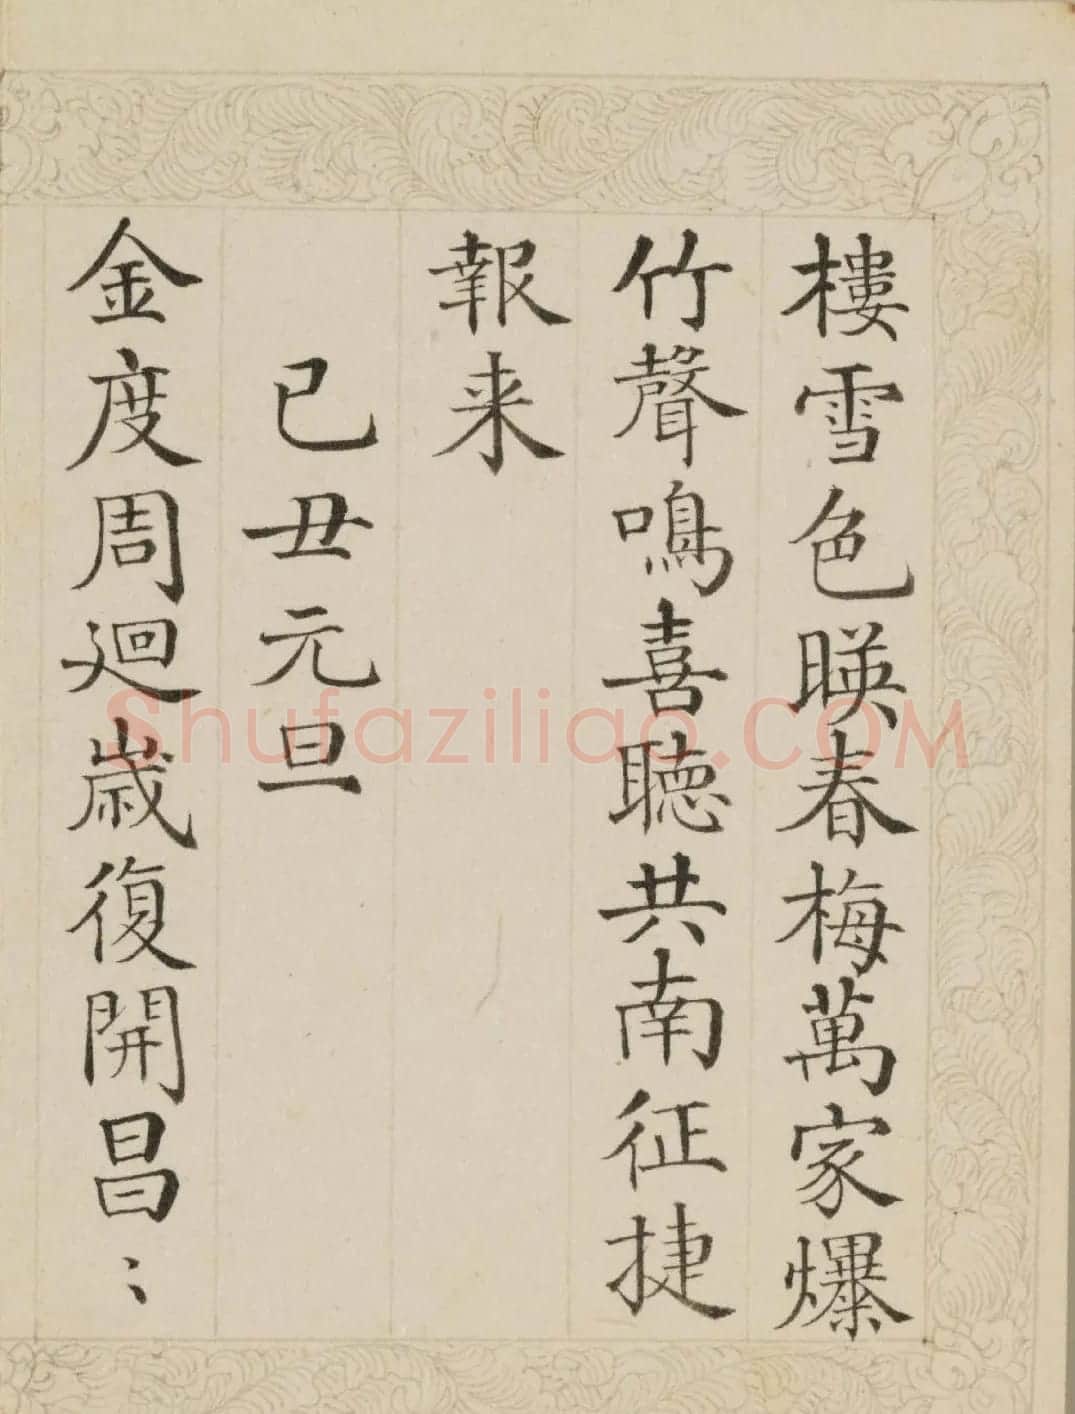 樓雪色暎春梅萬家爆
竹聲鳴喜聽共南征捷
報来
已丑元旦
金度周迴歳復開昌〻
Shufaziliao.COM